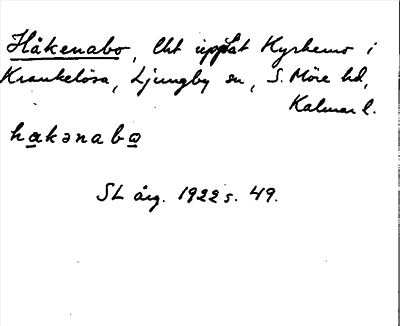 Håkenabo, lht uppkåt Kyrkemo i
Krankelösa, Ljungby sn, S. Möre hd,
Kalmar l.
hakənaba
SL årg. 1922 s. 49.